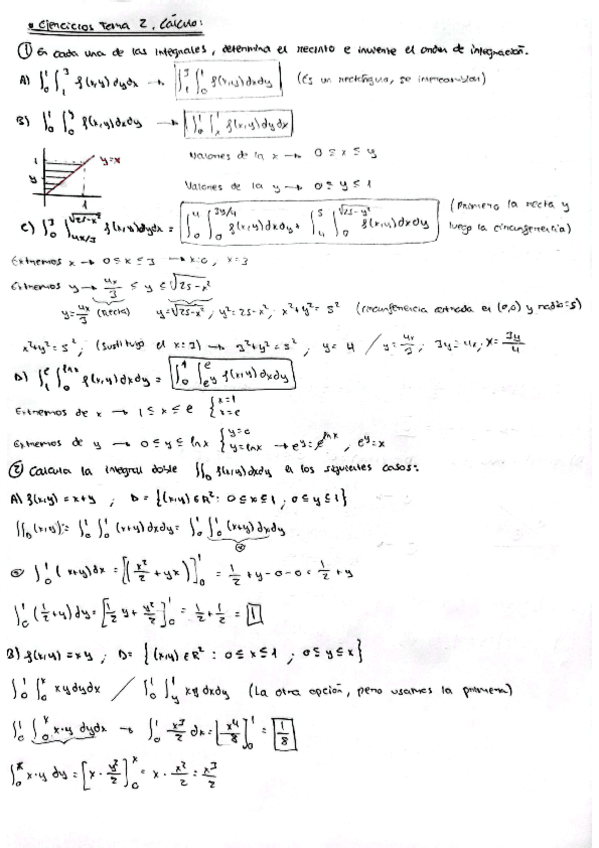 • Ejercicios Tema 2, Cálculo:
① En cada una de las integrales, determina el recinto e invierte el orden de integración.
A) ∫₀¹ ∫₁³ f(x,y) dy dx → ∫₁³ ∫₀¹ f(x,y) dx dy (Es un rectángulo, se intercambian)
B) ∫₀¹ ∫₀^y f(x,y) dx dy → ∫₀¹ ∫ₓ¹ f(x,y) dy dx
1 y y=x 1
Valores de la x → 0 ≤ x ≤ y
Valores de la y → 0 ≤ y ≤ 1
C) ∫₀³ ∫_{4x/3}^{√25-x²} f(x,y) dy dx = ∫₀⁴ ∫₀^{3y/4} f(x,y) dx dy + ∫₄⁵ ∫₀^{√25-y²} f(x,y) dx dy (Primero la recta y luego la circunferencia)
Extremos x → 0 ≤ x ≤ 3 → x=0, x=3
Extremos y → 4x/3 ≤ y ≤ √25-x²
y = 4x/3 (Recta) y=√25-x², y²=25-x², x²+y² = 5² (circunferencia centrada en (0,0) y radio=5)
x²+y²=5², (Sustituyo el x=3) → 3²+y²=5², y=4 / y=4x/3; 3y=4x; x=3y/4
D) ∫₁^e ∫₀^{lnx} f(x,y) dy dx = ∫₀¹ ∫_{e^y}^e f(x,y) dx dy
Extremos de x → 1 ≤ x ≤ e { x=1 x=e
Extremos de y → 0 ≤ y ≤ lnx { y=0 y=lnx → e^y = e^{lnx}, e^y = x
② Calcula la integral doble ∫∫_D f(x,y) dx dy en los siguientes casos:
A) f(x,y) = x+y ; D = {(x,y) ∈ R² : 0 ≤ x ≤ 1 ; 0 ≤ y ≤ 1}
∫∫_D (x,y) = ∫₀¹ ∫₀¹ (x+y) dx dy = ∫₀¹ ∫₀¹ (x+y) dx dy
∫₀¹ (x+y) dx = [(x²/2 + yx)]₀¹ = 1/2 + y - 0 - 0 = 1/2 + y
∫₀¹ (1/2 + y) dy = [1/2 y + y²/2]₀¹ = 1/2 + 1/2 = 1
B) f(x,y) = xy ; D = {(x,y) ∈ R² : 0 ≤ x ≤ 1 ; 0 ≤ y ≤ x}
∫₀¹ ∫₀ˣ xy dy dx / ∫₀¹ ∫_y¹ xy dx dy (La otra opción, pero usamos la primera)
∫₀¹ ∫₀ˣ x·y dy dx → ∫₀¹ x³/2 dx = [x⁴/8]₀¹ = 1/8
∫₀ˣ x·y dy = [x · y²/2]₀ˣ = x · x²/2 = x³/2